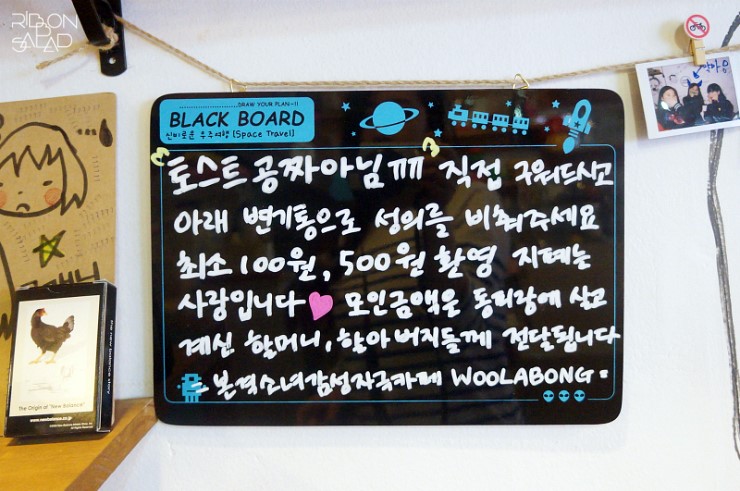 RIBBON
SALAD
DRAW YOUR PLAN-11
BLACK BOARD
신비로운 우주여행 [Space Travel]
토스트 공짜아님ㅠㅠ 직접 구워드시고
아래 변기통으로 성의를 비춰주세요
최소 100원, 500원 환영 지폐는
사랑입니다 모인금액은 동피랑에 살고
계신 할머니, 할아버지들께 전달됩니다
= 본격소녀감성자극카페 WOOLABONG =
The Origin of "New Balance"